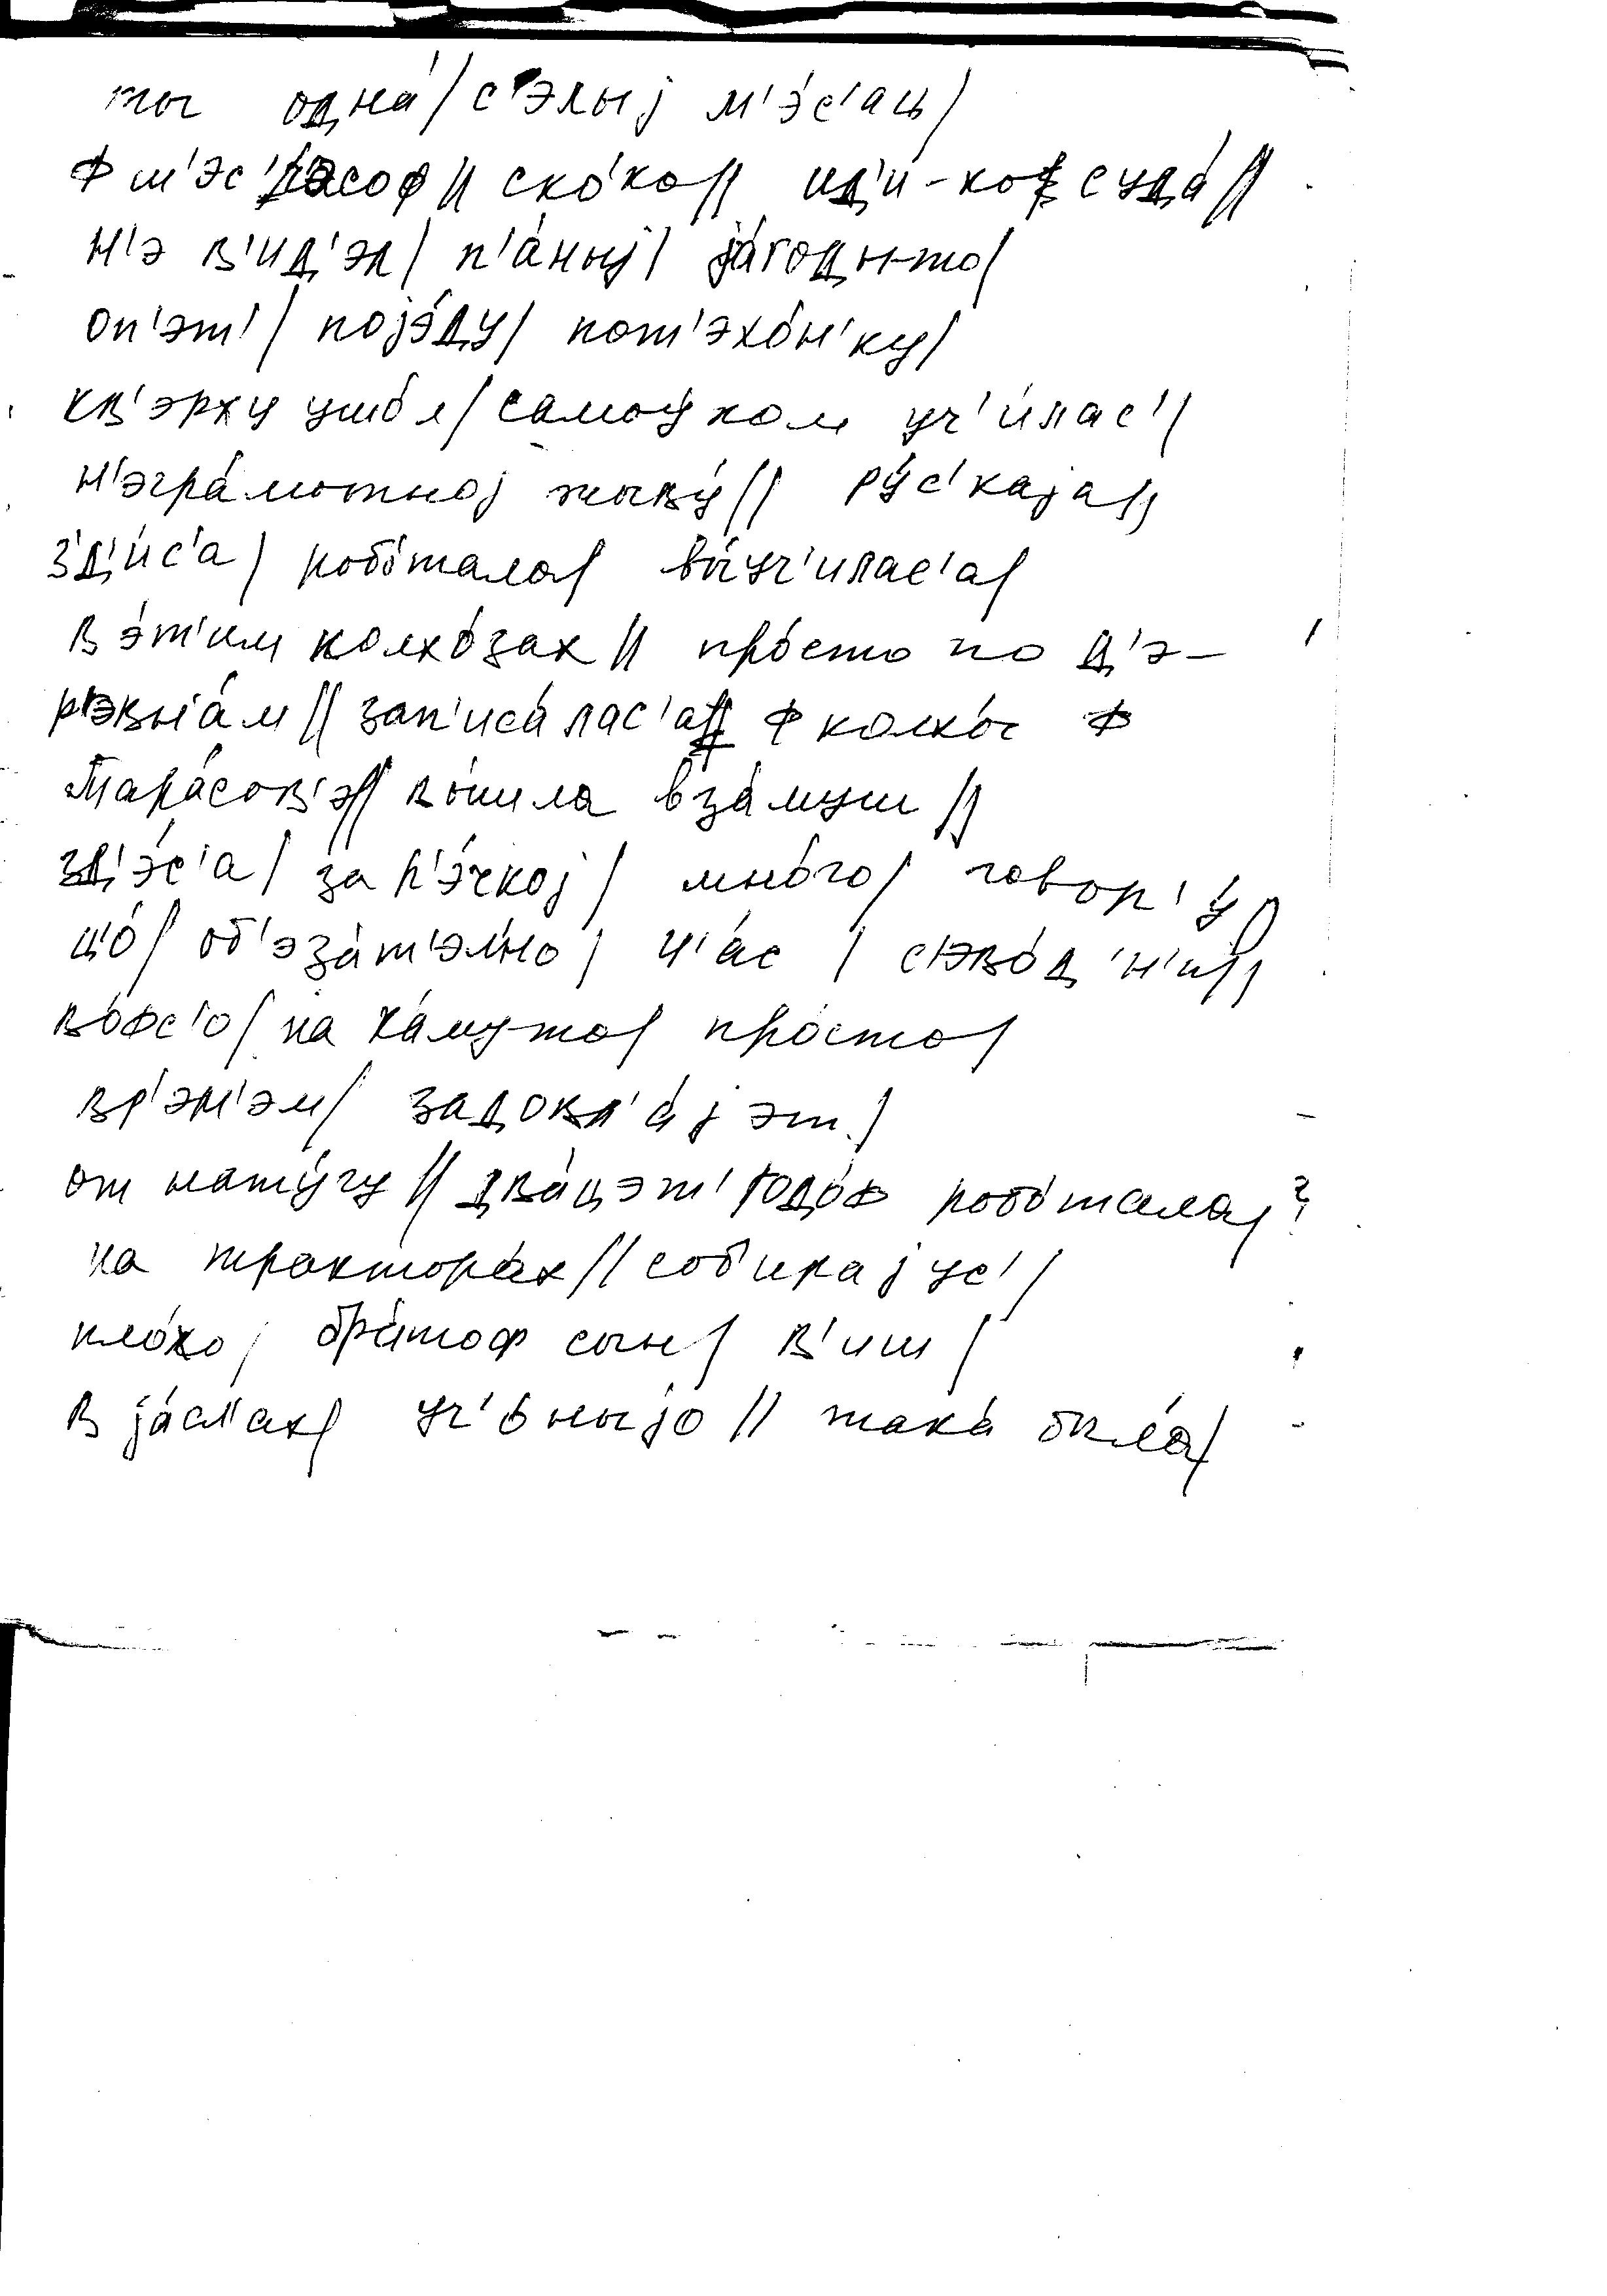 ты одна́/ с'э́лыј м'э́с'ац/
ф ш'эс' часоф// ско́ко// ид'и́-ко с'уда́//
н'э в'и́д'эл/ п'а́ныј/ја́годы-то/
оп'э́т'/ појэ́ду/ пот'эхо́н'ку/
кв'эрху ушо́л/ самоу́ком уч'и́лас'/
н'эгра́мотној жыву́// ру́с'каја//
з'д'и́с'а/ робо́тала/ вы́уч'илас'а/
в э́т'им колхо́зах// про́сто по д'э-
р'эвн'а́м// зап'иса́лас'а// ф колхо́с ф
Тара́сов'э// вы́шла вза́муш//
зд'э́с'а/ за р'э́чкој/ мно́го/ говор'у́/
цо́/ об'эза́т'эл'но/ ч'ас/ с'эво́д'н'и//
во́фс'о/ на ка́му-то/ про́сто/
вр'эм'эм/ задовл'а́јэт/
от нату́гу// два́цэт' годо́ф робо́тала/?
на трактора́х// соб'ира́јус'/
пло́хо/ бра́тоф сын/ в'иш/
в ја́сл'ах/ уч'о́ныјо// така́ была́/